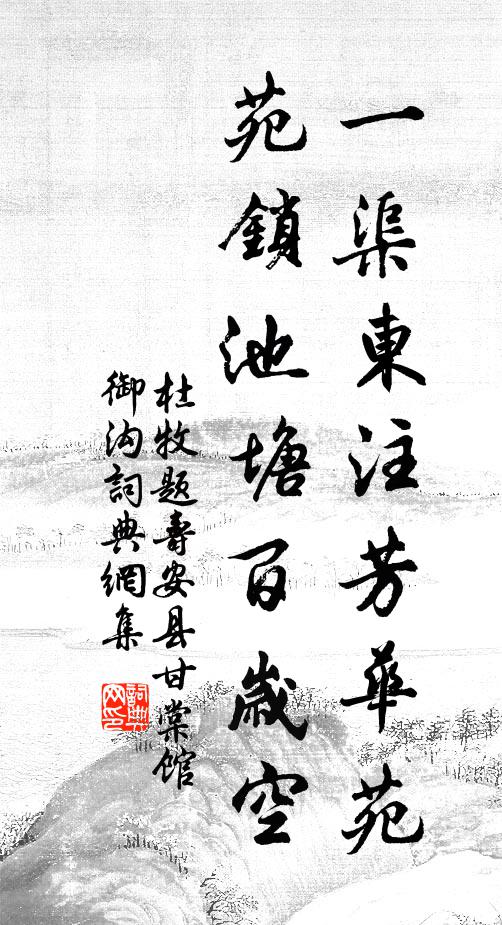 一渠東注芳華苑
苑鎖池塘百歲空
杜牧題壽安县甘棠館
御沟詞典網集
詞典网印